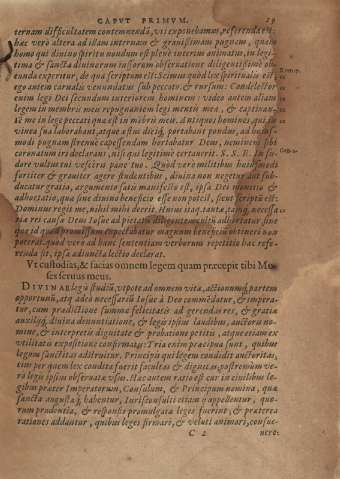 CAPVT PRIMVM. 29
ternam difficultatem contemnendā, vti exponebamus, referenda est:
hæc vero altera ad illam internam & grauissimam pugnam, quam
homo qui diuino spiritu nondum est plene interim animatus, in legi-
tima & sancta diuinarum iussorum obseruatione diligentissime ob-
eunda experitur, de qua scriptum est: Scimus quòd lex spiritualis est
ego autem carnalis venundatus sub peccato. & rursum: Condelector
enim legi Dei secundum interiorem hominem: video autem aliam
legem in membris meis repugnantem legi mentis meæ, & captiuan-
tē me in lege peccati quæ est in mēbris meis. Antiquos homines qui in
vinea sua laborabant, atque æstus diei portabant pondus, ad huius-
modi pugnam strenue capessendam hortabatur Deus, neminem sibi
coronatum iri declarans, nisi qui legitime certauerit. In su-
dore vultus tui vesceris pane tuo. Quod vero militibus huiusmodi
fortiter & grauiter agere studentibus, diuina non negetur aut sub-
ducatur gratia, argumento satis manifesto est, ipsa Dei monitio &
adhortatio, quæ sine diuino beneficio esse non potest, sicut scriptū est:
Dominus regit me, nihil mihi deerit. Huius itaq. tantæ, tamq. necessa-
riæ rei causa Deus Iosue ad pietatis diligentem cultū adhortatur sine
quo id quod promissum expectabatur magnum beneficiū obtineri non
poterat. quod vero ad hanc sententiam verborum repetitio hæc refe-
renda sit, ipsa adiuncta lectio declarat.
Vt custodias, & facias omnem legem quam præcepit tibi Mo-
ses seruus meus.
DIVINAE legis studiū, vtpote ad omnem vita, actionumq. partem
opportunū, atq. adeo necessariū Iosue à Deo commēdatur, & impera-
tur, cum prædictione summæ felicitatis ad gerendas res, & gratia
auxiliiq. diuina demonstratione, & legis ipsius laudibus, auctoris no-
mine, & interpretis dignitate & probatione petitis, atque etiam ex
vtilitatis expositione confirmatis: Tria enim præcipua sunt, quibus
legum sanctitas adstruitur. Principis qui legem condidit auctoritas,
tum per quem lex condita fuerit facultas & dignitas, postremùm ve-
rò legis ipsius obseruatæ vsus. Hac autem ratio est cur in ciuilibus le-
gibus præter Imperatorum, Consulum, & Principum nomina, quæ
sancta augusta q. habentur, Iurisconsulti etiam appellentur, quo-
rum prudentia, & responsis promulgatæ leges fuerint, & præterea
rationes addantur, quibus leges firmari, & veluti animari, consue-
C 2 uero: